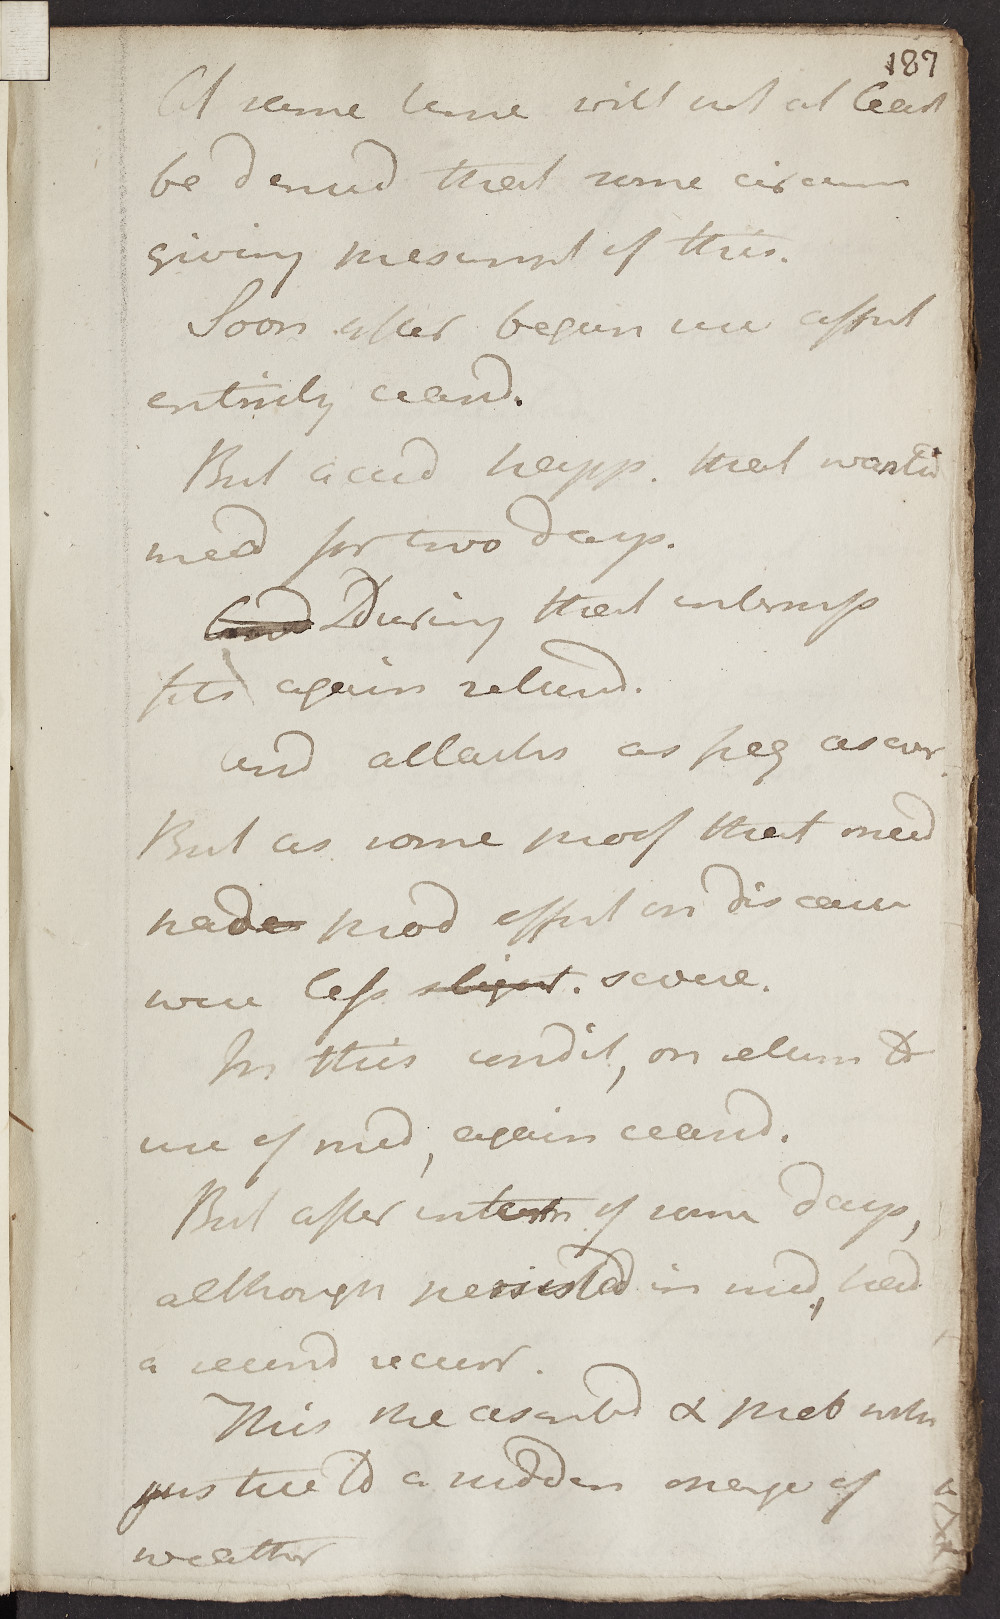 187
At same time will not at least
be denied that some circum
giving presumpt of this.
Soon after begun use affect
entirely ceasd.
But accid happ. that wanted
med for two days.
And During that interrup
fits again returnd.
And attacks as freq as ever.
But as some proof that med
had prod effect on dis
were less slight. severe.
In this condit, on return to
use of med, again ceasd.
But after of some days,
although persisted in med, had
a second recurr.
This she ascribd & prob with
justice to a sudden change of
weather